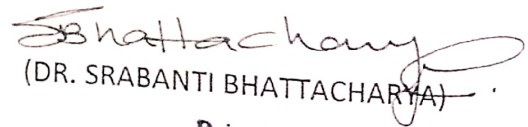 SBhattacharya
(DR. SRABANTI BHATTACHARYA)